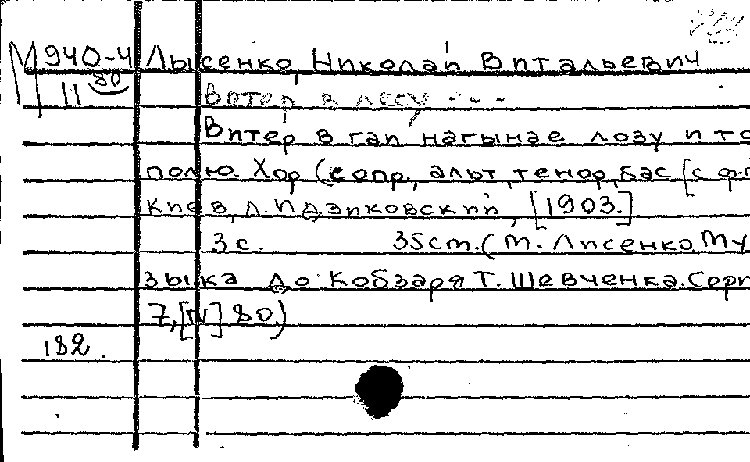 М 940-4 Лысенко, Николай Витальевич
80
11 Витер в лесу ...
Витер в гаи нагынае лозу и то
полю. Хор (сопр, альт, тенор, бас [с ф.п
Киев, Л. Идзиковский, [1903.]
3 с. 35 cm. (М. Лисенко. Му
зыка до Кобзаря Т. Шевченка. Сери
7, [IV] 80.)
182.